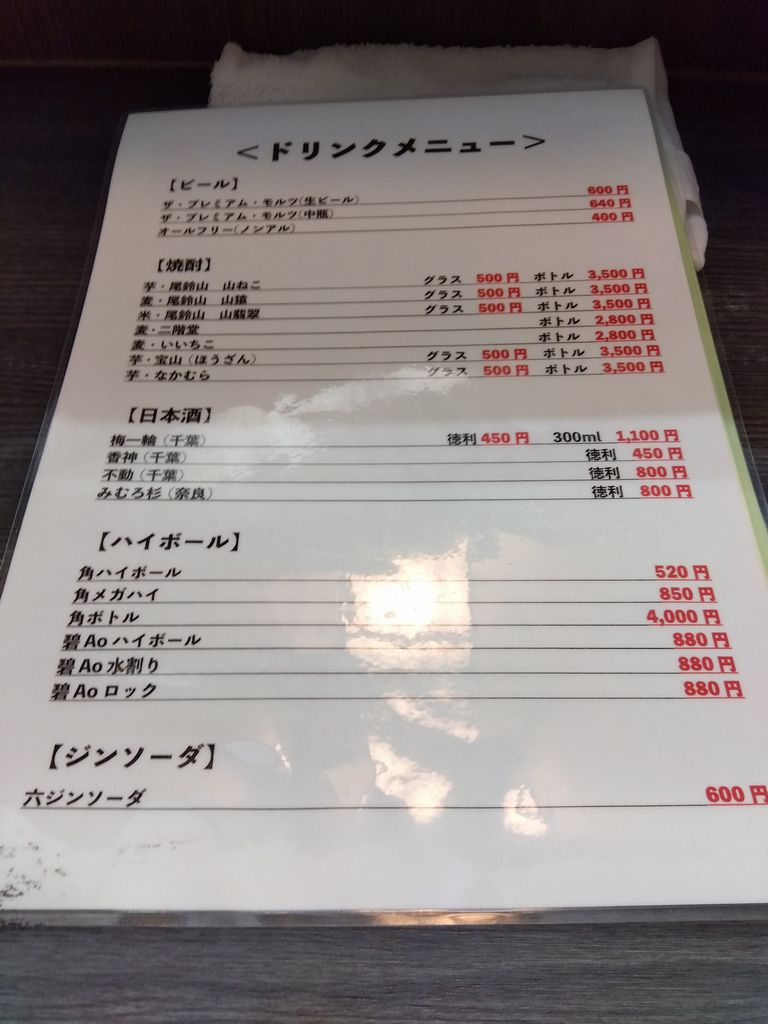 ＜ドリンクメニュー＞
【ビール】
ザ・プレミアム・モルツ(生ビール) 600円
ザ・プレミアム・モルツ(中瓶) 640円
オールフリー(ノンアル) 400円
【焼酎】
芋・尾鈴山 山ねこ グラス 500円 ボトル 3,500円
麦・尾鈴山 山猿 グラス 500円 ボトル 3,500円
米・尾鈴山 山翡翠 グラス 500円 ボトル 3,500円
麦・二階堂 ボトル 2,800円
麦・いいちこ ボトル 2,800円
芋・宝山(ほうざん) グラス 500円 ボトル 3,500円
芋・なかむら グラス 500円 ボトル 3,500円
【日本酒】
梅一輪(千葉) 徳利 450円 300ml 1,100円
香神(千葉) 徳利 450円
不動(千葉) 徳利 800円
みむろ杉(奈良) 徳利 800円
【ハイボール】
角ハイボール 520円
角メガハイ 850円
角ボトル 4,000円
碧Aoハイボール 880円
碧Ao水割り 880円
碧Aoロック 880円
【ジンソーダ】
六ジンソーダ 600円